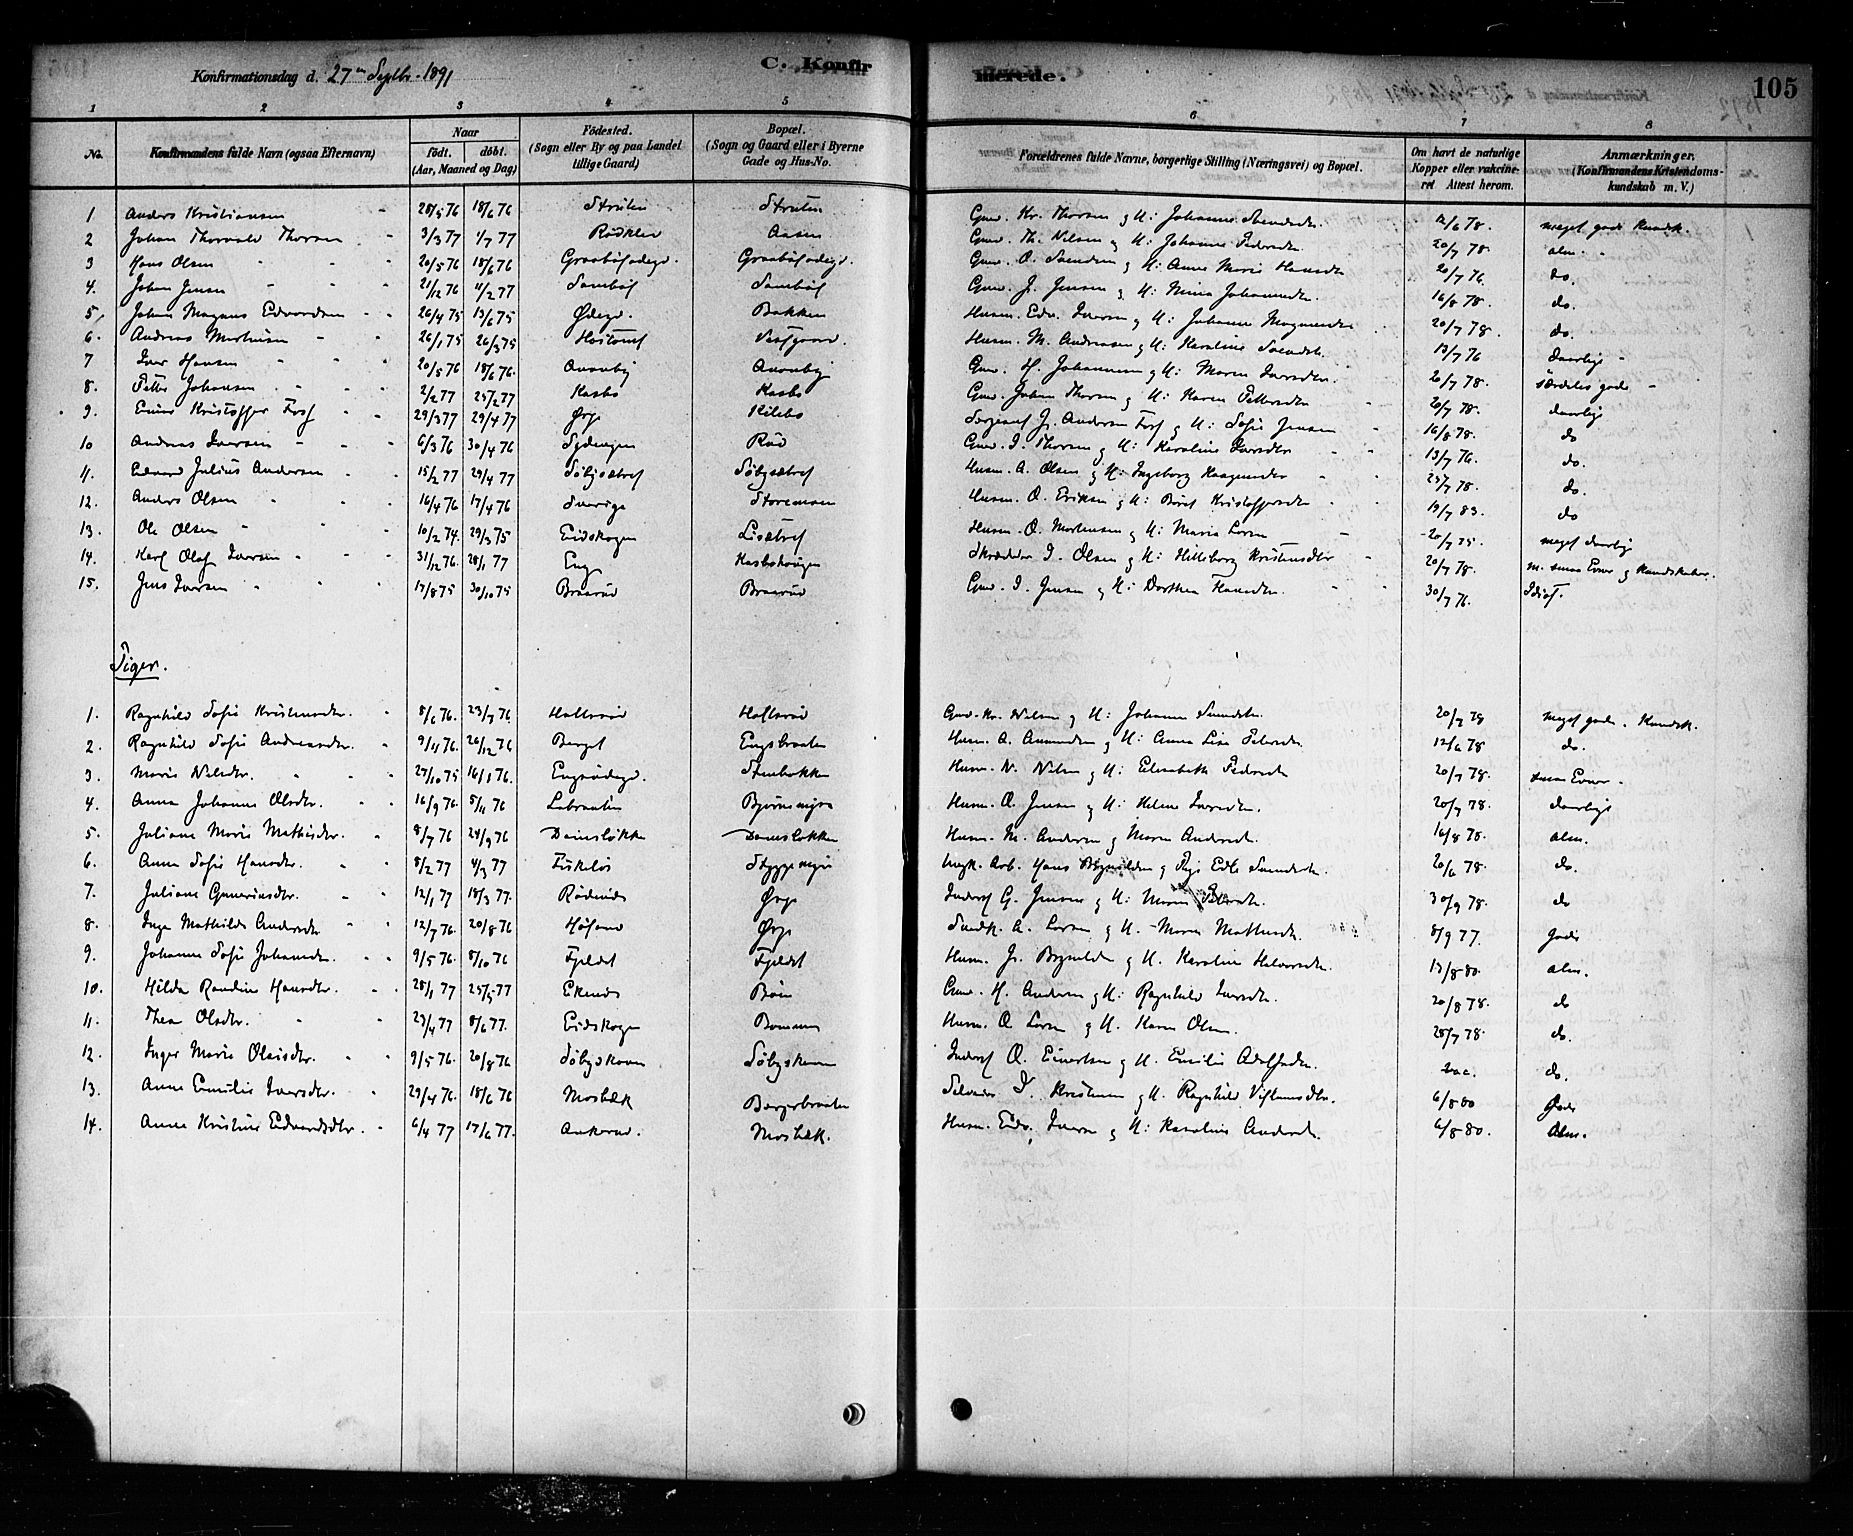 Konfirmationsdag d. 27de Septbr. 1891
C. Konfirmerede.
105
1 2 3 4 5 6 7 8
No. Konfirmandens fulde Navn (ogsaa Efternavn) Naar født. døbt. (Aar, Maaned og Dag) Fødested. (Sogn eller By og paa Landet tillige Gaard) Bopæl. (Sogn og Gaard eller i Byerne Gade og Hus-No. Forældrenes fulde Navne, borgerlige Stilling (Næringsvei) og Bopæl. Om havt de naturlige Kopper eller vakcineret Attest herom. Anmærkninger. (Konfirmandens Kristendomskundskab m. V.)
1 Anders Kristiansen 28/5 76 18/6 76 Struten Struten Gmd. Kr. Thorsen og H: Johanne Svendsdr. 12/6 78. meget gode Kundsk.
2 Johan Thorvald Thorsen 3/3 77 1/7 77 Rødklev Aasen Gmd. Th. Nilsen og H: Johanne Pedersdr. 20/7 78. alm.
3 Hans Olsen 20/5 76 18/6 76 Graabølødegd. Graabølødegd. Gmd. O. Svendsen og H: Anne Marie Hansdr 20/7 76. do.
4. Johan Jensen 21/12 76 4/2 77 Sambøl Sambøl Gmd. J. Jensen og H: Mina Johannesdr. 16/8 78. do.
5. Johan Magnus Edvardsen 26/4 75 13/6 75 Ødegd. Bakken Husm. Edv. Iversen og H: Johanne Magnusdr 20/7 78. do.
6. Andreas Mortensen 26/1 75 26/3 75 Vestgaard. Husm. M. Andreasen og H: Karoline Svendsdr. 13/7 76 daarlige
7 Iver Hansen 20/5 76 18/6 76. Aronby Aronby Gmd. H. Johannesen og H: Maren Iversdr. 20/7 78. særdeles gode
8. Petter Johansen 2/2 77 25/2 77 Kasbo Kasbo Gmd. Johan Thorsen og H: Karen Pettersdr 20/7 78. daarlige
9. Enius Kristoffer Foss 29/3 77 29/4 77 Ørje Kilebo Sergeant J. Andersen Foss og H: Sofie Jensen 16/8 78. do
10 Andreas Iversen 6/3 76 30/4 76 Sydengen Rød Gmd. I. Thorsen og H: Karoline Larsdr 13/7 76. do.
11. Edvard Julius Andersen 15/2 77 29/4 77 Søbysætret Søbysætret Husm. A. Olsen og H: Ingeborg Haagensdr 25/7 78. do.
12. Anders Olsen 16/4 76 17/4 76 Sverige Storemosen Husm. O. Eriksen og H: Berit Kristoffersdr 19/7 83. do
13. Ole Olsen 10/2 74. 29/3 75 Eidskogen Lisætret Husm. O. Mortensen og H: Maria Larsen 20/7 75. meget daarlige
14. Karl Olaf Iversen 31/12 76. 28/1 77 Eng Kasboskougen Skrædder I. Olsen og H: Hilleborg Kristensdtr 20/7 78. m. smaa Evner og Kundskaber.
15. Jens Iversen 17/8 75 30/10 75 Braarud Braarud Gmd. I. Jensen og H: Dorthea Hansdr. 30/7 76. Idiot.
Piger.
1. Ragnhild Sofie Kristensdr. 8/6 76. 23/7 76. Holtsrød Holtsrød Gmd. Kr. Nilsen og H: Johanne Svendsdr. 20/7 78 meget gode Kundsk.
2. Ragnhild Sofie Andreasdr. 9/11 76. 26/12 76 Berget Engsbraaten Husm. A. Amundsen og H: Anna Lisa Petersdr 12/6 78 do.
3. Marie Nilsdr. 27/10 75 16/1 76. Engsødegd. Stenbakken Husm. N. Nilsen og H: Elisabeth Pedersdr 20/7 78. smaa Evner
4. Anna Johanne Olsdtr. 16/9 76. 5/11 76 Labraaten Bjørnemyra Husm. O. Jensen og H: Helene Larsdtr. 20/7 78. daarlige
5. Juliane Marie Mathisdtr. 8/7 76 24/9 76 Damsløkka Damsløkken Husm. M. Andersen og Maren Andersdr. 16/8 78. alm.
6. Anna Sofie Hansdtr. 8/2 77 4/3 77 Fiskeløs Styggemyr Ungk. Arb. Hans Brynildsen og Pige Edle Svendsdr. 20/6 78. do.
7. Juliane Gunerinsdtr. 12/1 77 18/3 77. Rødenæs Ørje Inderst G. Jensen og H: Maren 30/9 78. do
8. Inga Mathilde Andersdr 12/7 76. 20/8 76 Høland Ørje A. Larsen og H. Maren Mathisdr. 8/9 77. Gode
9. Johanne Sofie Johannesdr. 9/5 76. 8/10 76 Fjeldet Fjeldet Husm. Js. Brynildsen og H. Karoline Halvorsdr. 13/8 80. alm.
10. Hilda Randine Hansdtr. 28/1 77 25/3 77 Ekenes Bøen Gmd. H. Andersen og H: Ragnhild Iversdr. 20/8 78. do
11. Thea Olsdtr. 23/4 77 8/6 77. Eidskogen Bommen Husm. O Larsen og H. Karen Olsen. 28/7 78. do.
12. Inger Marie Olsisdtr. 9/5 76. 20/8 76 Søbyskoven Søbyskoven Inderst O. Einertsen og H. Emilie Adolfsdtr. vac. do.
13. Anne Emilie Iversdtr. 29/4 76 18/6 76 Mosbæk Bergerbraaten Selveier I. Kristensen og H. Ragnhild 6/8 80 Gode
14. Anne Kristine Edvardsdtr. 6/4 77 17/6 77. Ankerud. Mosbæk. Husm. Edv. Iversen og H: Karoline Andersdr. 6/8 80. Alm.